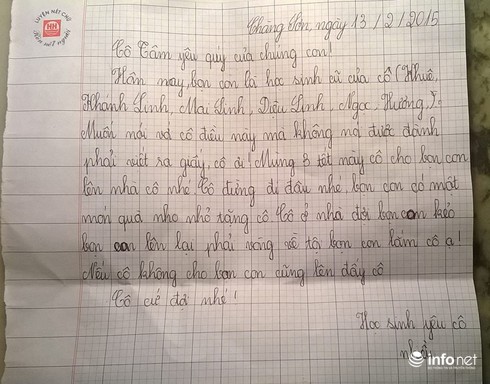 LUYỆN NÉT CHỮ
HH
RÈN NẾT NGƯỜI
Tràng Sơn, ngày 13/2/2015
Cô Tâm yêu quý của chúng con!
Hôm nay, bọn con là học sinh cũ của cô (Khuê,
Khánh Linh, Mai Linh, Diệu Linh, Ngọc, Hương,
Muốn nói với cô điều này mà không nói được đành
phải viết ra giấy, cô ơi! Mùng 3 tết này cô cho bọn con
lên nhà cô nhé. Cô đừng đi đâu nhé, bọn con có một
món quà nho nhỏ tặng cô. Cô ở nhà đợi bọn con kẻo
bọn con lên lại phải vắng về tội bọn con lắm cô ạ!
Nếu cô không cho bọn con cũng lên đấy cô
Cô cứ đợi nhé!
Học sinh yêu cô
nhất
infonet